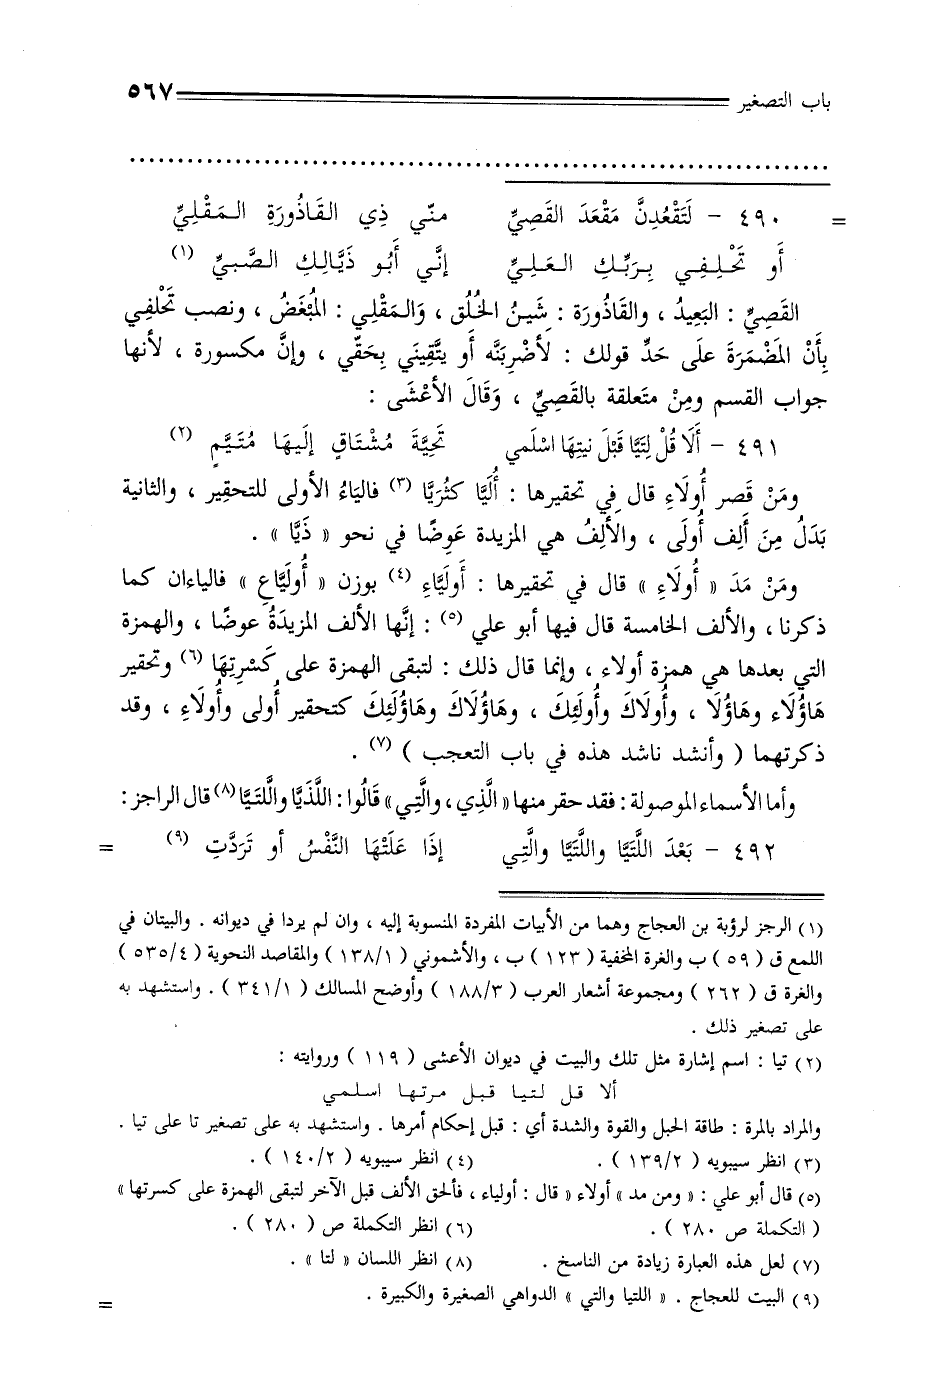 باب التصغير ٥٦٧
= ٤٩٠ - لَتَقْعُدِنَّ مَقْعَدَ القَصِيِّ منّي ذِي القَاذُورَةِ المَقْلِيِّ
أَو تَحْلِفِي بِرَبِّكِ العَلِيِّ إنِّي أَبُو ذَيَّالِكِ الصَّبيِّ (١)
القَصِيِّ : البَعِيدُ ، والقَاذُورَة : شَينُ الخُلُق ، وَالمَقْلِي : المُبْغَضُ ، ونصب تَحْلْفِي
بِأَنْ المَضْمَرَةَ علَى حَدِّ قولك : لأضْرِبَنَّه أو يتَّقِيَنِي بِحَقّي ، وإنَّ مكسورة ، لأنها
جواب القسم ومِنْ متَعلقة بالقَصِيِّ ، وَقَالَ الأَعْشَى :
٤٩١ - أَلَا قُلْ لِتَيَّا قَبْلَ نيتِهَا اسْلَمي تَحِيَّةَ مُشْتَاقٍ إلَيهَا مُتَيَّمٍ (٢)
ومَنْ قَصر أُولَاءِ قال في تحقيرها : أُلَيَّا كثُرَيَّا (٣) فاليَاءُ الأولى للتحقِير ، والثانية
بَدَلُ مِنَ أَلِف أُولَى ، والألِفُ هي المزيدة عَوِضًا في نحو « ذَيَّا » .
ومَنْ مَدَ « أُولَاءِ » قال في تحقيرها : أُولَيَّاءِ (٤) بوزن « أُولَيَّاعِ » فالياءان كما
ذكرنا ، والألف الخامسة قال فيها أبو علي (٥) : إنَّها الألف المزيدَةُ عوضًا ، والهمزة
التي بعدها هي همزة أولاء ، وإنما قال ذلك : لتبقى الهمزة على كَسْرتِهَا (٦) وتحقير
هَاؤُلَاء وهَاؤُلَا ، وأُولَاكَ وأُولَئِكَ ، وهَاؤُلَاكَ وهَاؤُلَئِكَ كتحقير أُولى وأُولَاءِ ، وقد
ذكرتهما ( وأنشد ناشد هذه في باب التعجب ) (٧) .
وأما الأسماء الموصولة : فقد حقر منها « الَّذِي ، والَّتِي » قَالُوا : اللَّذَيَّا واللَّتَيَّا (٨) قال الراجز :
٤٩٢ - بَعْدَ اللَّتَيَّا واللَّتَيَّا والَّتِي إذَا عَلَتْهَا النَّفْسُ أو تَرَدَّتِ (٩) =
(١) الرجز لرؤبة بن العجاج وهما من الأبيات المفردة المنسوبة إليه ، وان لم يردا في ديوانه . والبيتان في
اللمع ق ( ٥٩ ) ب والغرة المخفية ( ١٢٣ ) ب ، والأشموني ( ١٣٨/١ ) والمقاصد النحوية ( ٥٣٥/٤ )
والغرة ق ( ٢٦٢ ) ومجموعة أشعار العرب ( ١٨٨/٣ ) وأوضح المسالك ( ٣٤١/١ ) . واستشهد به
على تصغير ذلك .
(٢) تيا : اسم إشارة مثل تلك والبيت في ديوان الأعشى ( ١١٩ ) وروايته :
ألا قل لتيا قبل مرتها اسلمي
والمراد بالمرة : طاقة الحبل والقوة والشدة أي : قبل إحكام أمرها . واستشهد به على تصغير تا على تيا .
(٣) انظر سيبويه ( ١٣٩/٢ ) . (٤) انظر سيبويه ( ١٤٠/٢ ) .
(٥) قال أبو علي : « ومن مد » أولاء « قال : أولياء ، فألحق الألف قبل الآخر لتبقى الهمزة على كسرتها »
( التكملة ص ٢٨٠ ) . (٦) انظر التكملة ص ( ٢٨٠ ) .
(٧) لعل هذه العبارة زيادة من الناسخ . (٨) انظر اللسان « لتا » .
(٩) البيت للعجاج . « اللتيا والتي » الدواهي الصغيرة والكبيرة . =